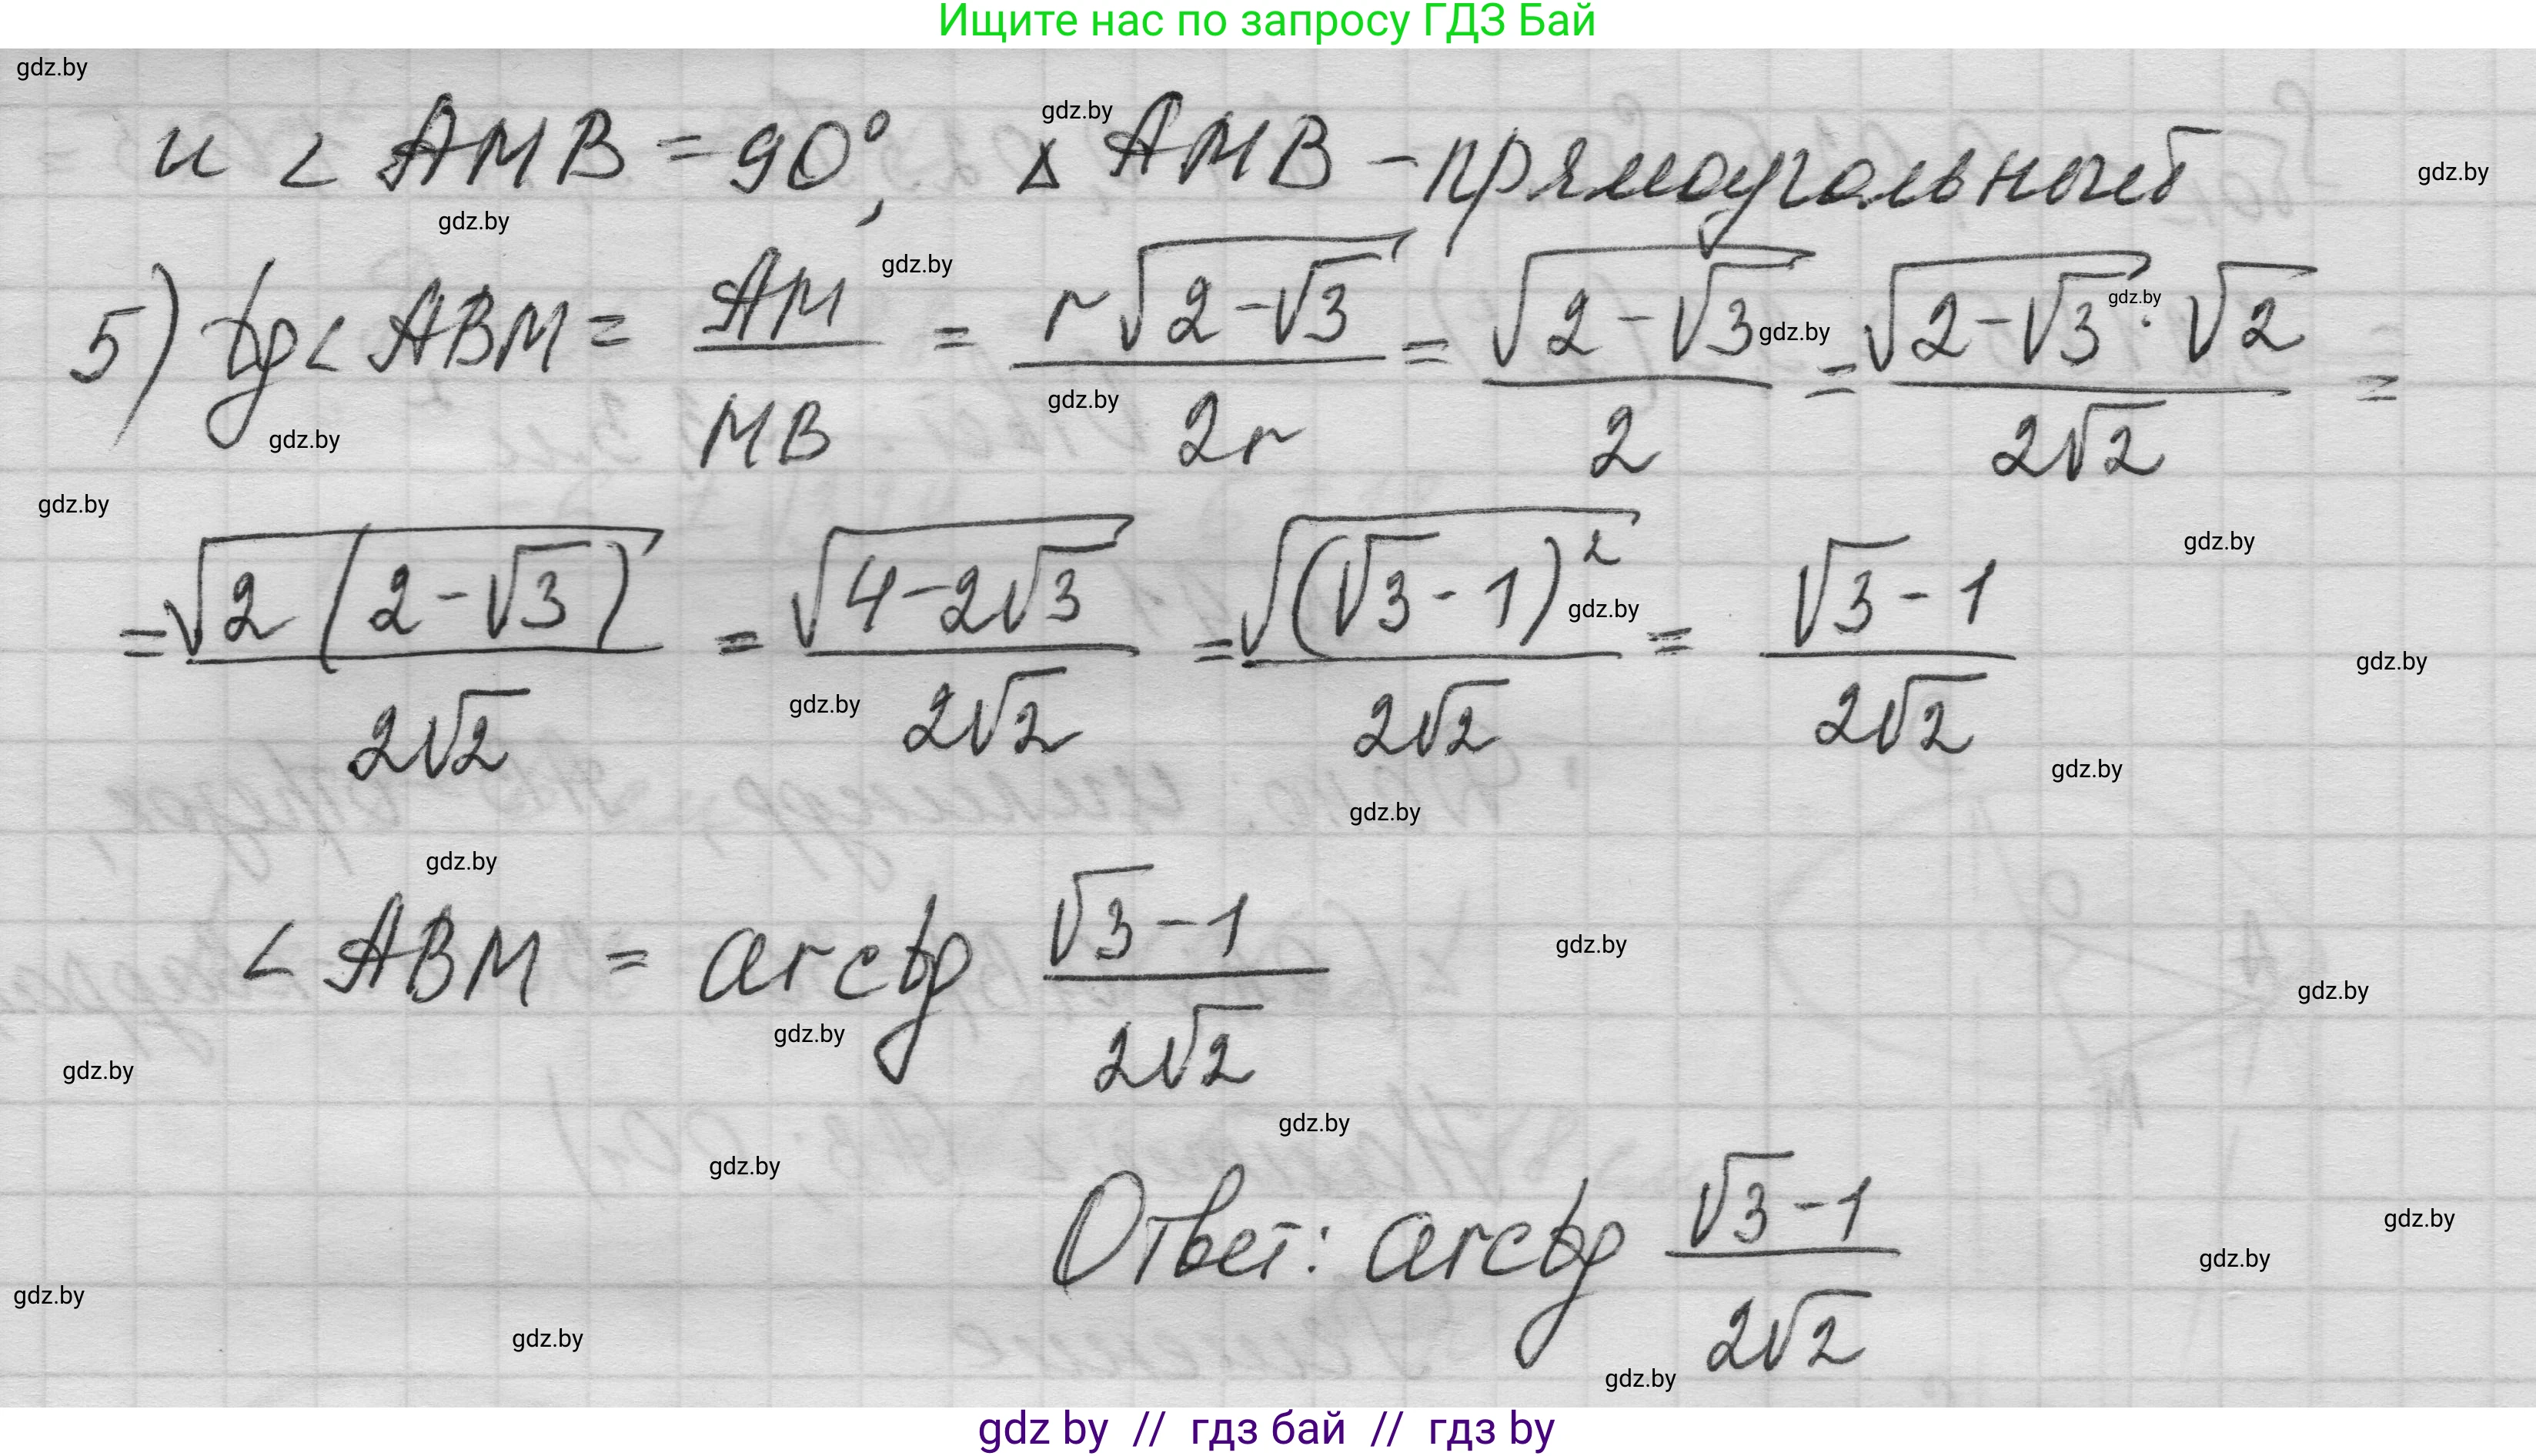 Ищите нас по запросу ГДЗ Бай
gdz.by
и ∠ AMB = 90°, △ AMB – прямоугольный
5) tg∠ ABM = AM/MB = r√(2-√3)/2r = √(2-√3)/2 = √(2-√3)·√2/2√2 =
= √(2(2-√3))/2√2 = √(4-2√3)/2√2 = √((√3-1)²)/2√2 = (√3-1)/2√2
∠ ABM = arctg (√3-1)/2√2
Ответ: arctg (√3-1)/2√2
gdz by // гдз бай // гдз by